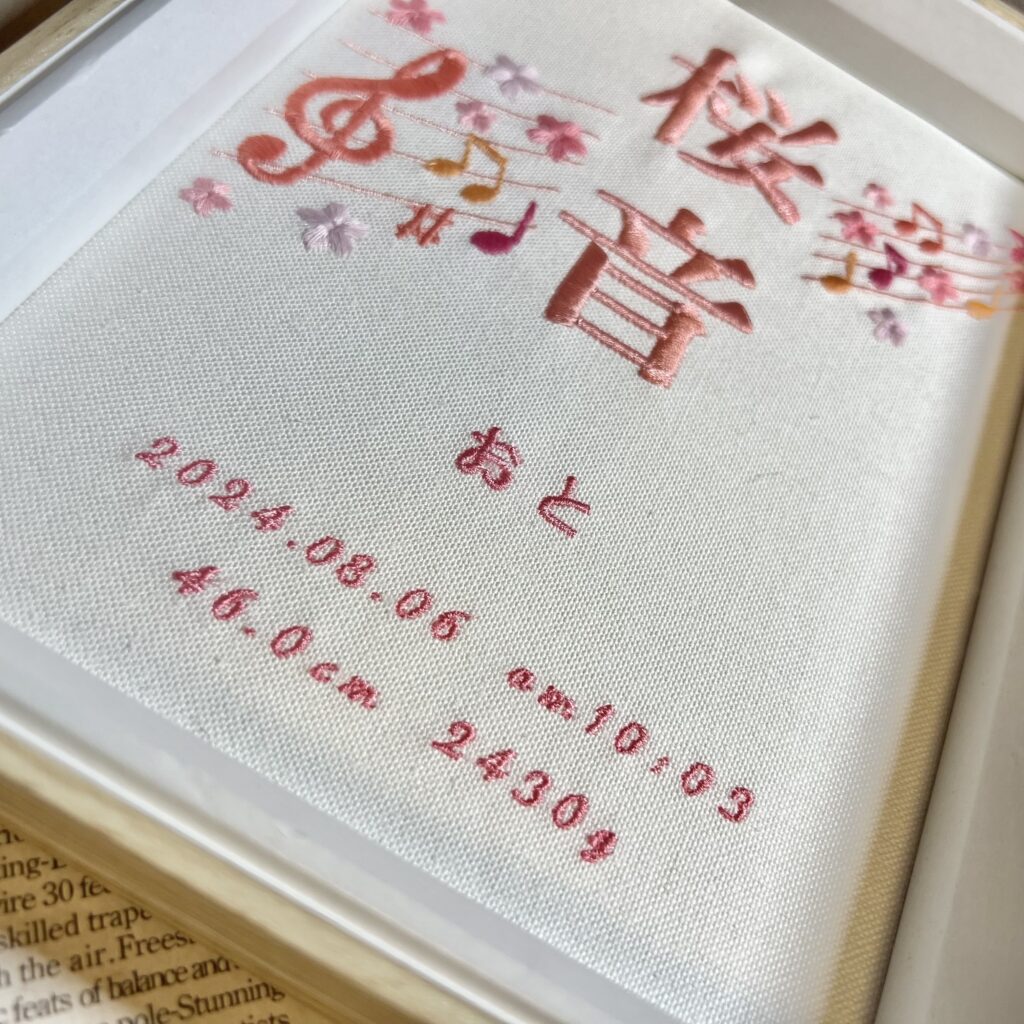 桜音
おと
2024.08.06 am10:03
46.0cm 2430g
30
skilled
the air. Frees
feats of balance and
pole-Stunning